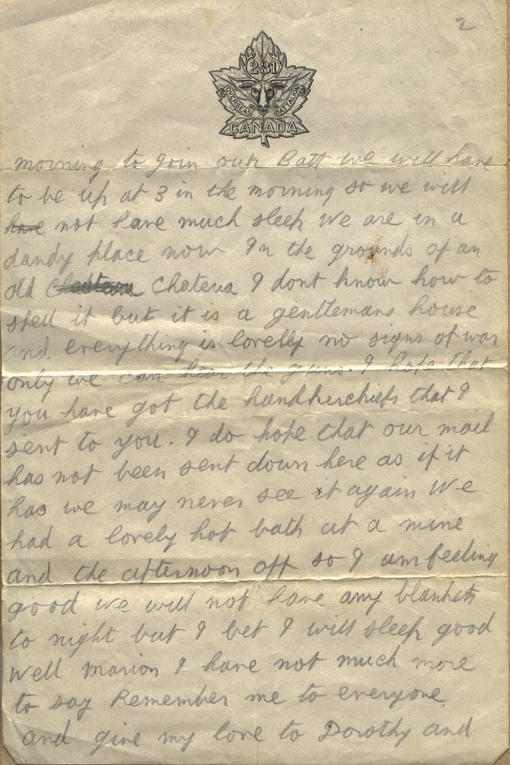 2
231
OVERSEAS BATTALION
CANADA
morning to join our Batt we will have
to be up at 3 in the morning so we will
have not have much sleep We are in a
dandy place now In the grounds of an
old Chateua I dont know how to
spell it but it is a gentlemans house
and everything is lovelly no signs of war
only we can hear the guns. I hope that
you have got the handkerchiefs that I
sent to you. I do hope that our mail
has not been sent down here as if it
has we may never see it again We
had a lovely hot bath at a mine
and the afternoon off so I am feeling
good we will not have any blankets
to night but I bet I will sleep good
Well Marion I have not much more
to say Remember me to everyone
and give my love to Dorothy and